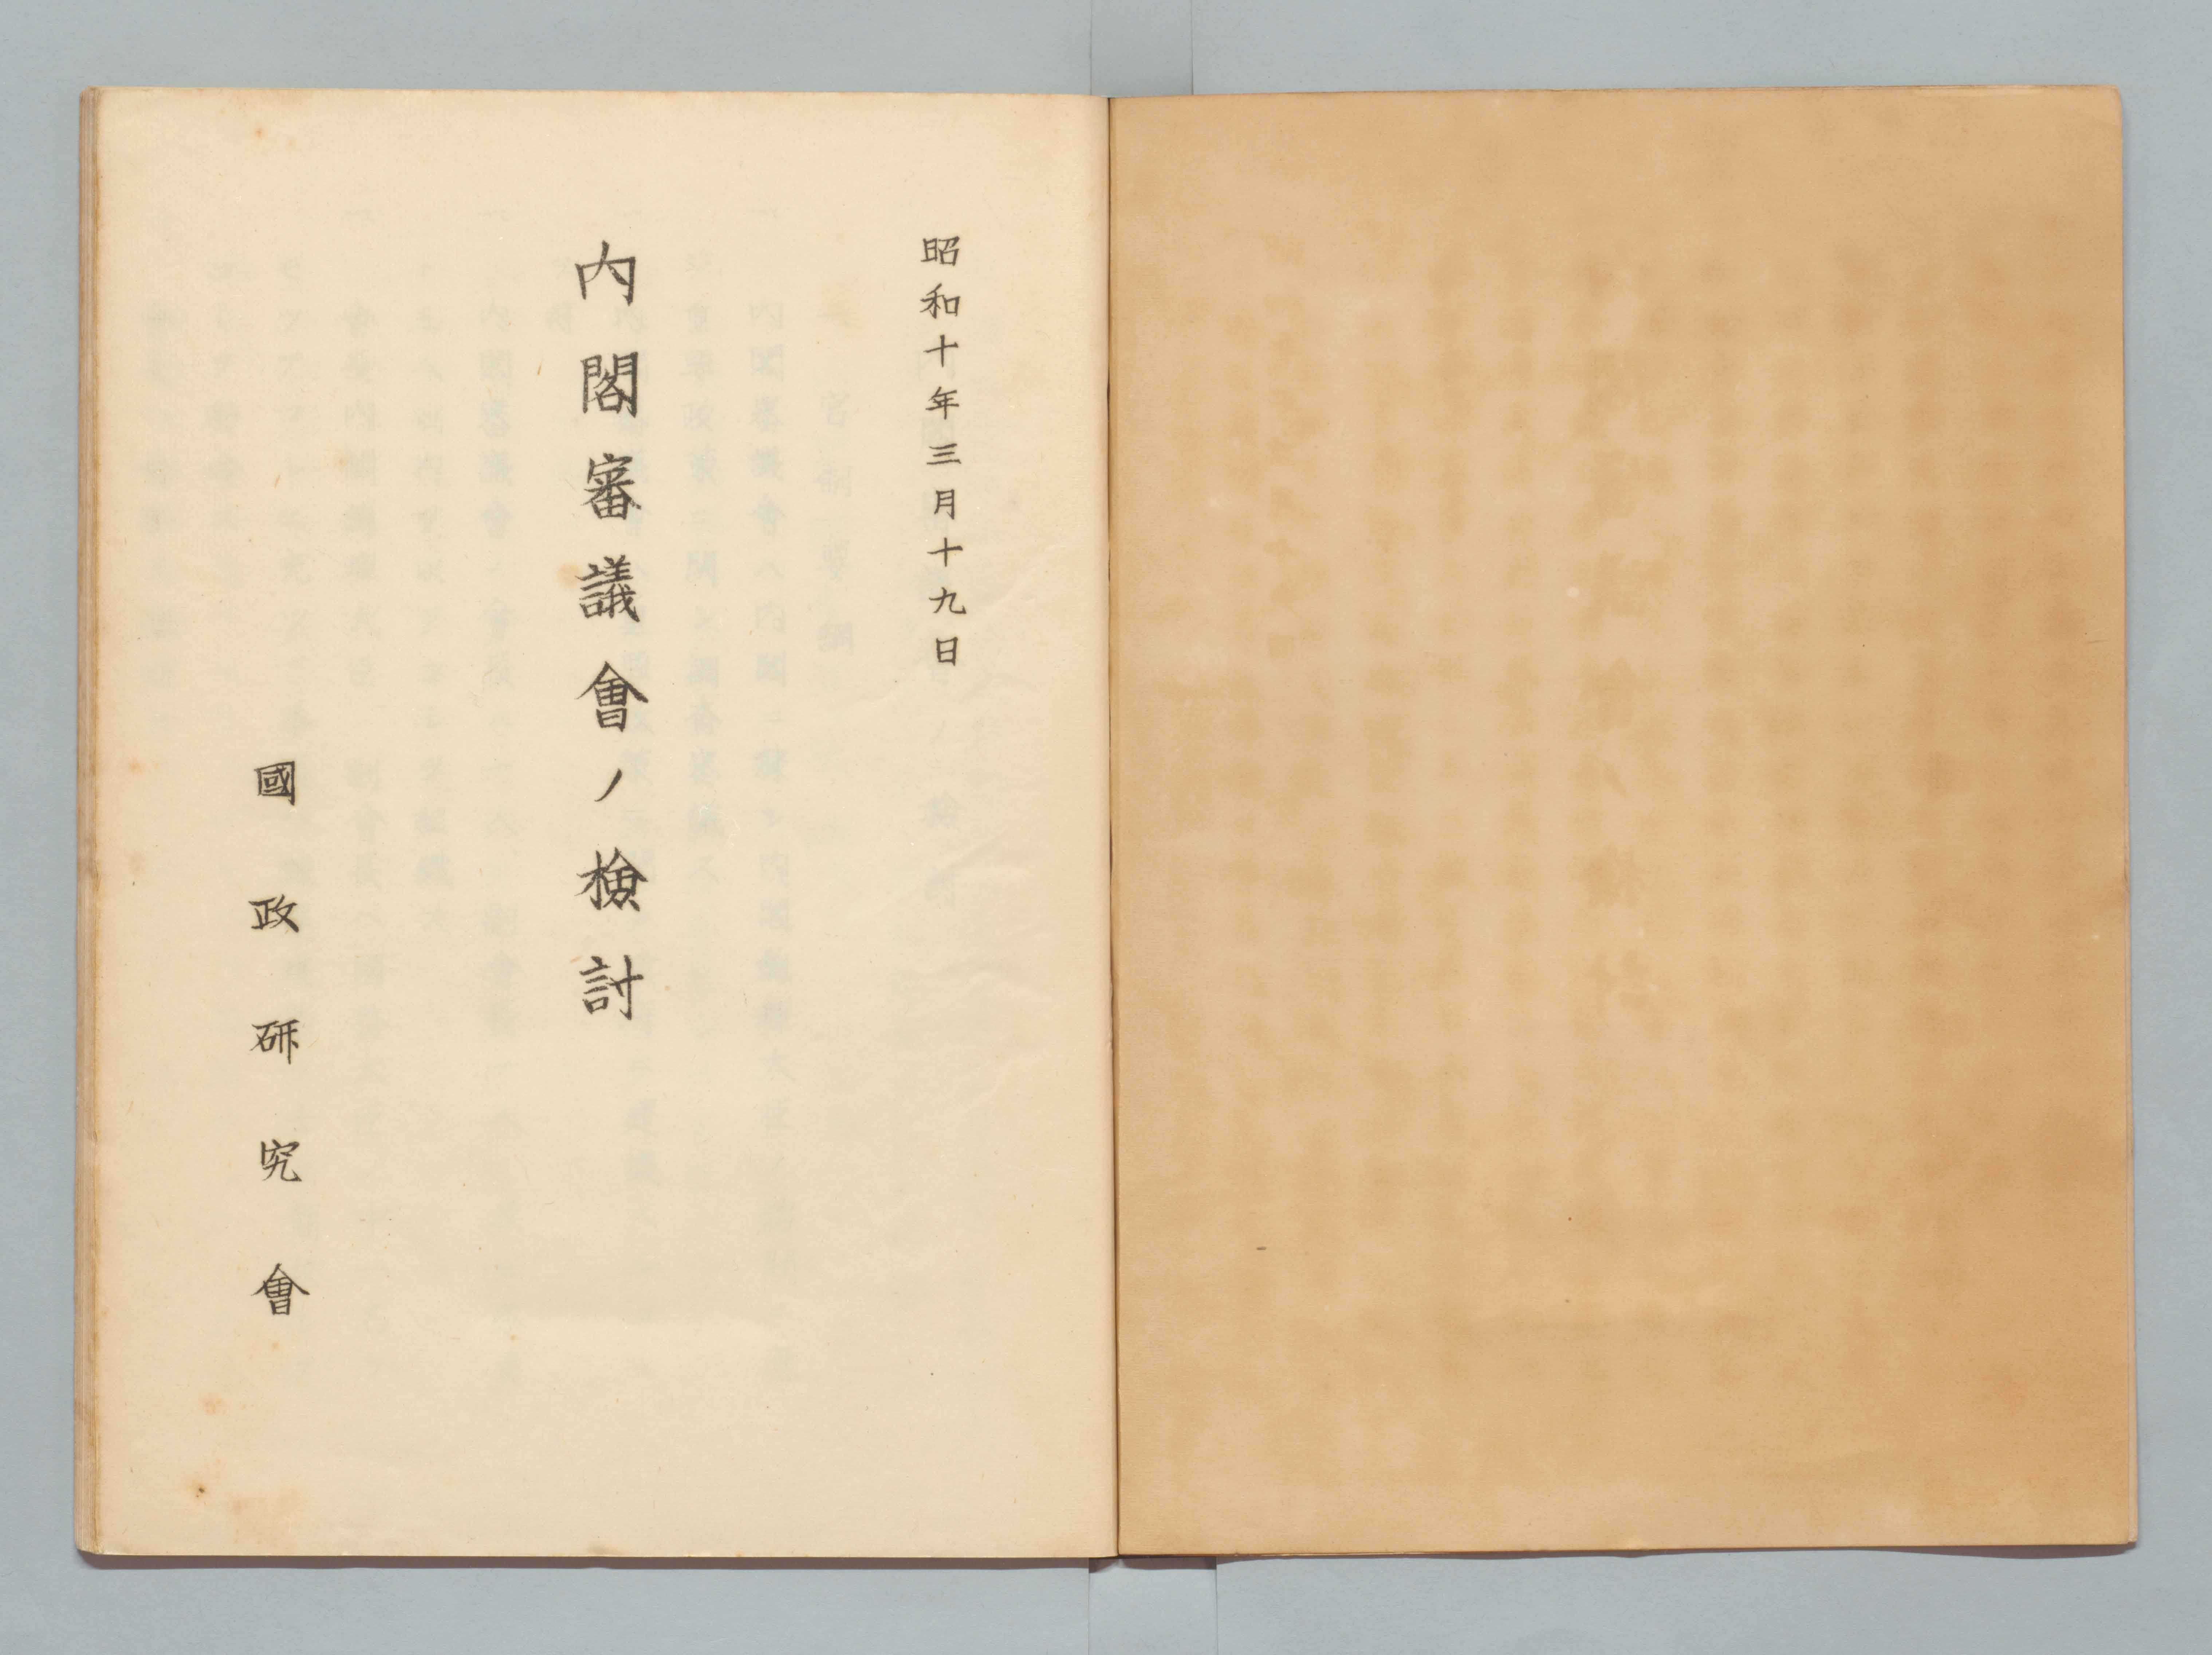 昭和十年三月十九日
内閣審議會ノ檢討
國政研究會